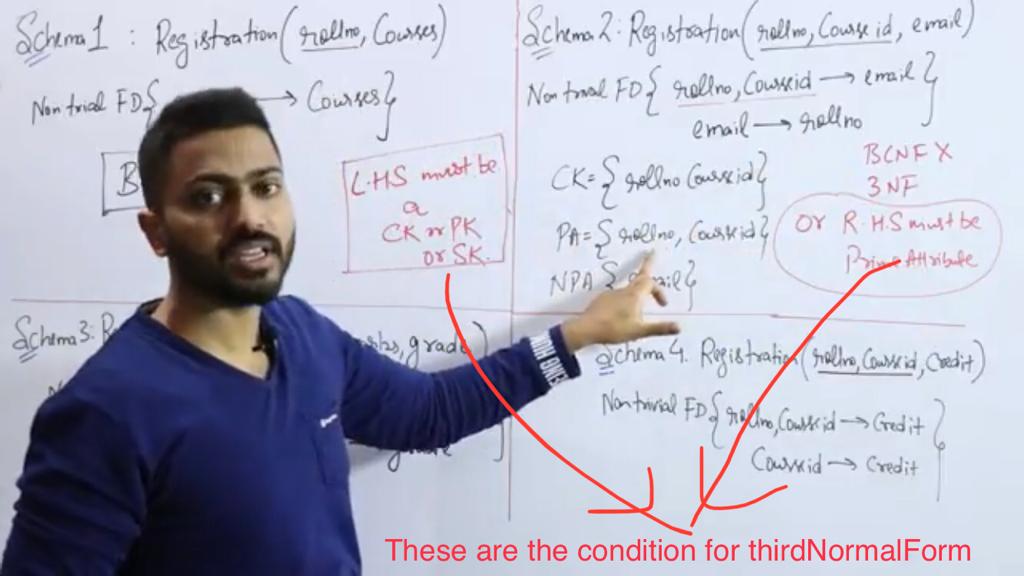 Schema 1 : Registration (rollno, Courses)
Non trial FD { → Courses}
B
L.HS must be
a
CK or PK
or SK.
Schema 2: Registration (rollno, Course id, email)
Non trial FD { rollno, Courseid → email }
email → rollno
CK = { rollno Courseid}
PA = { rollno, Courseid}
NPA {email}
BCNF X
3NF
Or R.H.S must be
Prime Attribute
Schema 3: , grade)
Schema 4. Registration (rollno, Courseid, Credit)
Non trivial FD { rollno, Courseid → Credit }
Courseid → Credit
These are the condition for thirdNormalForm